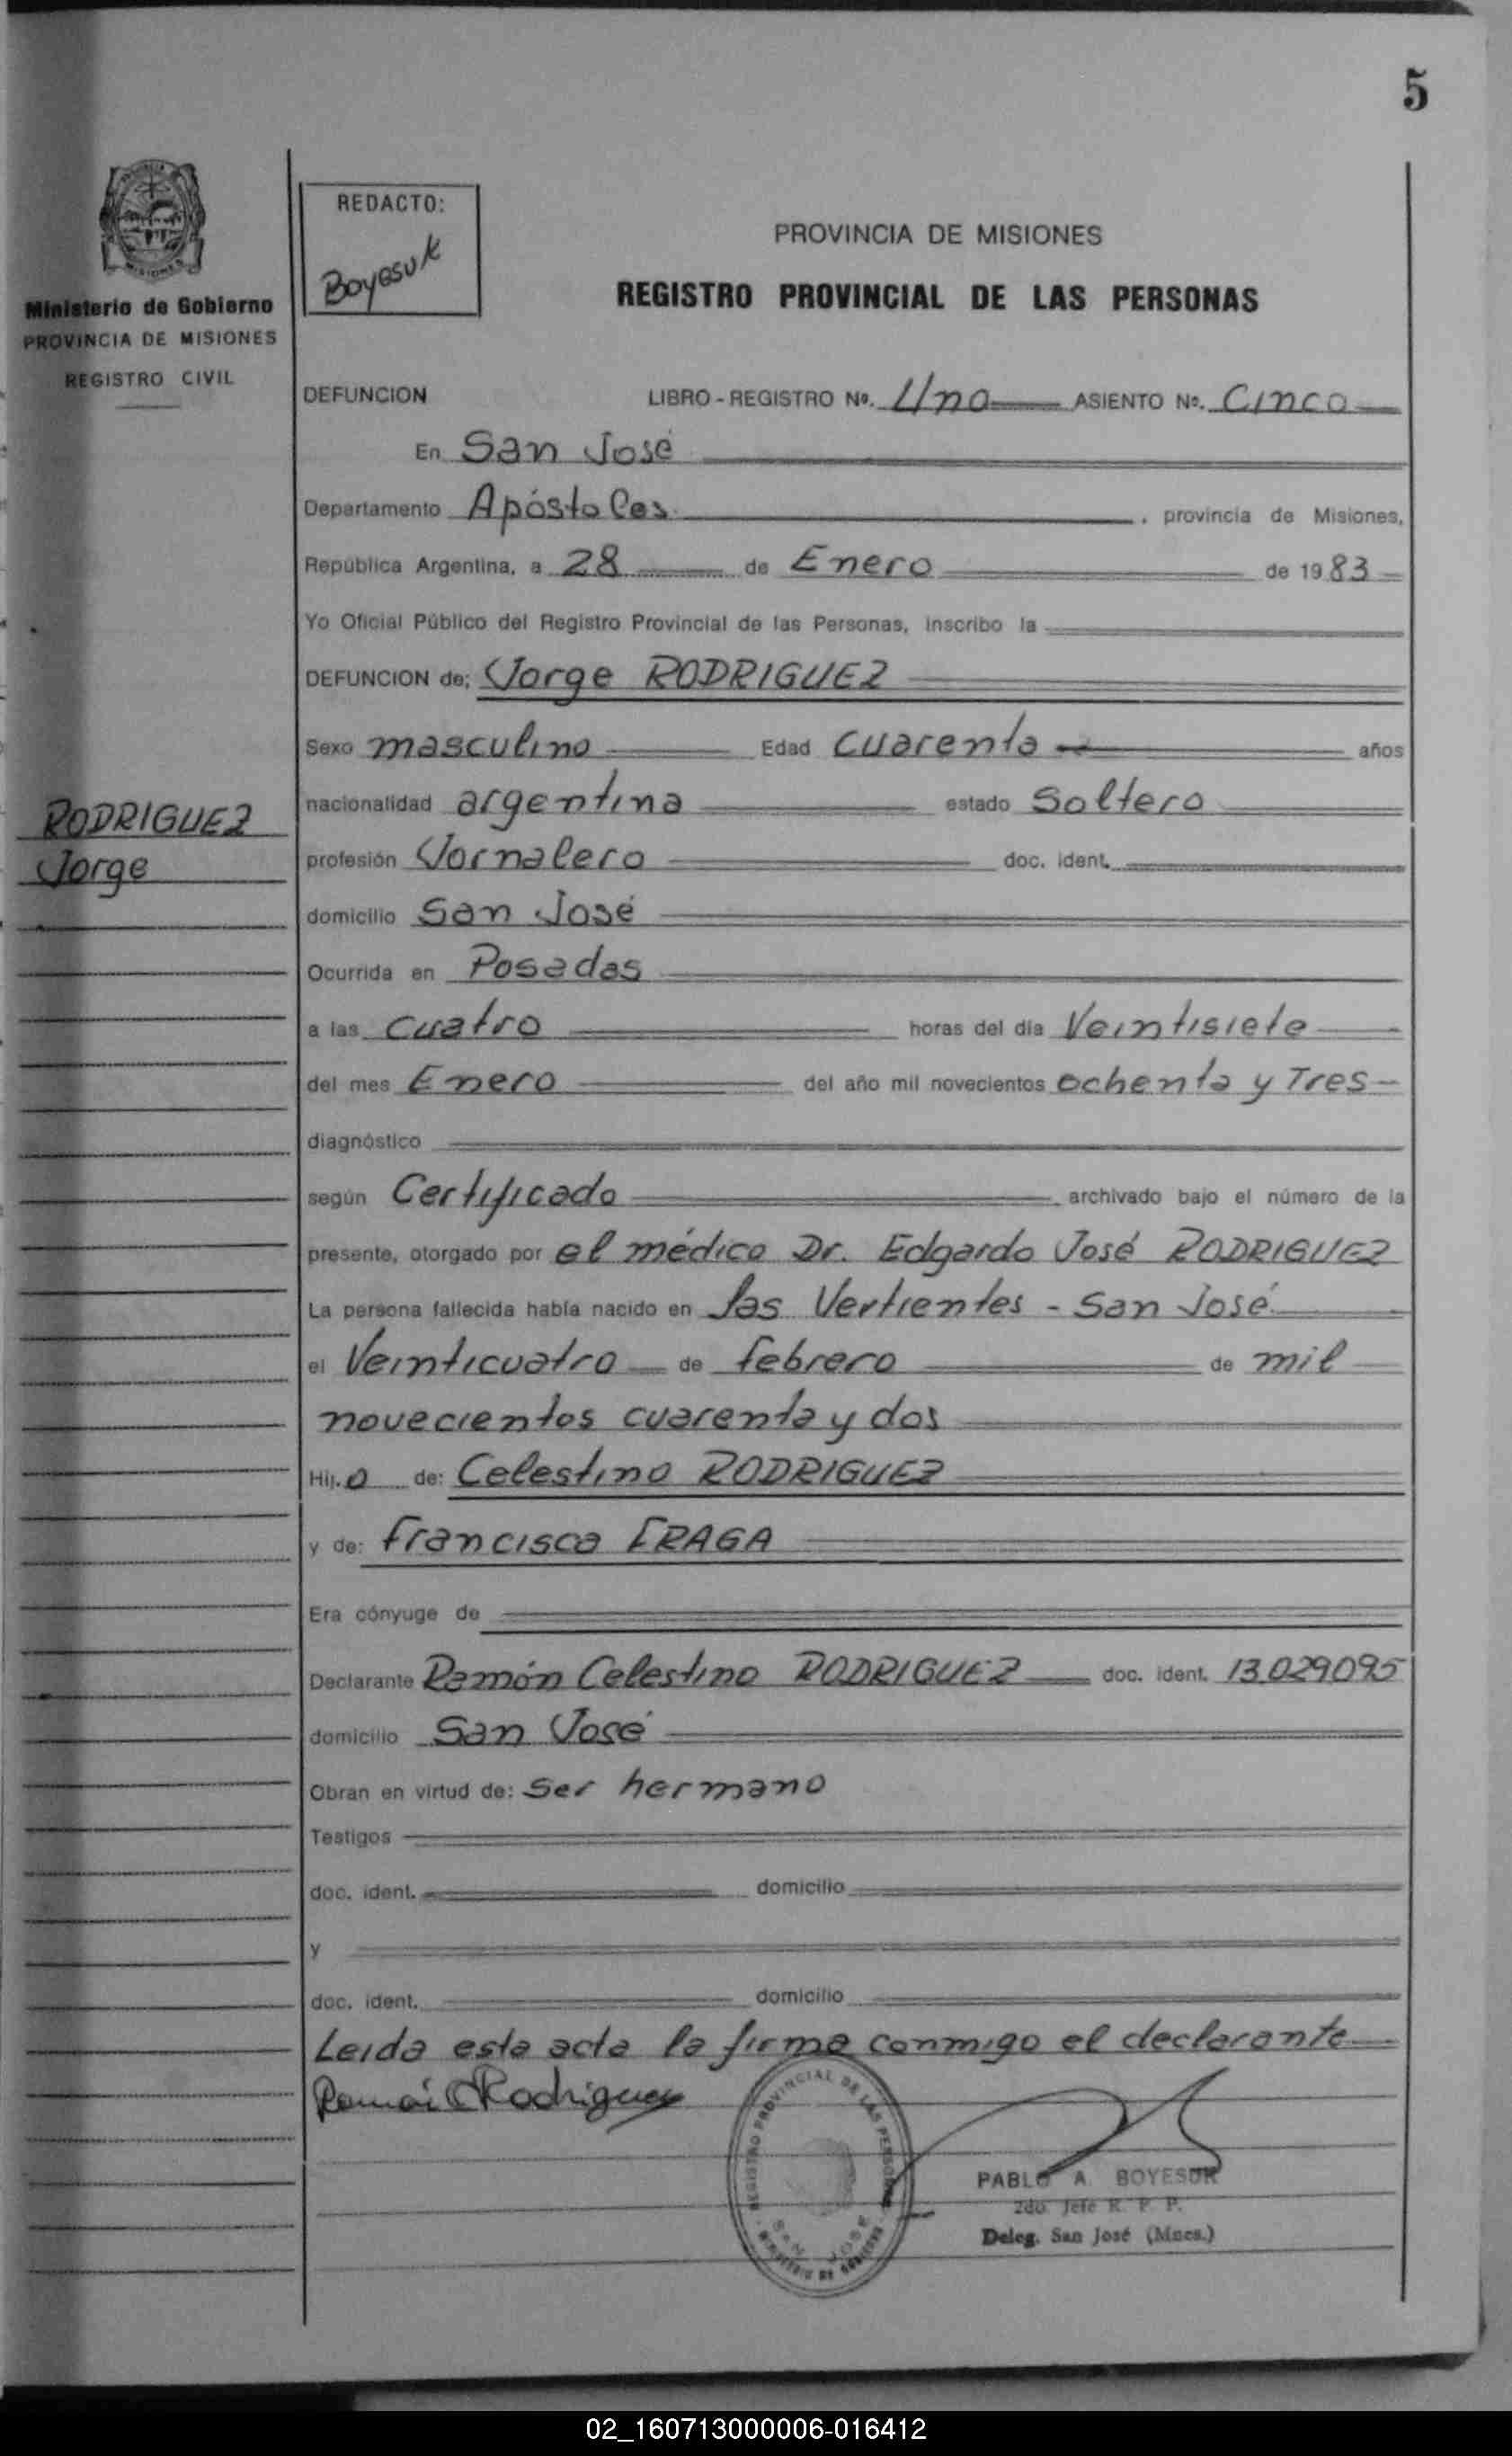 5
Ministerio de Gobierno
PROVINCIA DE MISIONES
REGISTRO CIVIL
RODRIGUEZ
Jorge
REDACTO:
Boyesuk
PROVINCIA DE MISIONES
REGISTRO PROVINCIAL DE LAS PERSONAS
DEFUNCION LIBRO-REGISTRO Nº. Uno ASIENTO Nº. Cinco
En San José
Departamento Apóstoles, provincia de Misiones,
República Argentina, a 28 de Enero de 1983
Yo Oficial Público del Registro Provincial de las Personas, inscribo la
DEFUNCION de: Jorge RODRIGUEZ
Sexo masculino Edad Cuarenta años
nacionalidad argentina estado Soltero
profesión Jornalero doc. ident.
domicilio San José
Ocurrida en Posadas
a las cuatro horas del día Veintisiete
del mes Enero del año mil novecientos ochenta y Tres
diagnóstico
según Certificado archivado bajo el número de la
presente, otorgado por el médico Dr. Edgardo José RODRIGUEZ
La persona fallecida había nacido en las Vertientes - San José
el Veinticuatro de febrero de mil
novecientos cuarenta y dos
Hij.o de: Celestino RODRIGUEZ
y de: Francisca FRAGA
Era cónyuge de
Declarante Ramón Celestino RODRIGUEZ doc. ident. 13.029.095
domicilio San José
Obran en virtud de: Ser hermano
Testigos
doc. ident. domicilio
y
doc. ident. domicilio
Leida esta acta la firma conmigo el declarante
Ramón C Rodriguez
REGISTRO PROVINCIAL DE LAS PERSONAS
SAN JOSE
MINISTERIO DE GOBIERNO
PABLO A. BOYESUK
2do. Jefe R. P. P.
Deleg. San José (Mnes.)
02_160713000006-016412